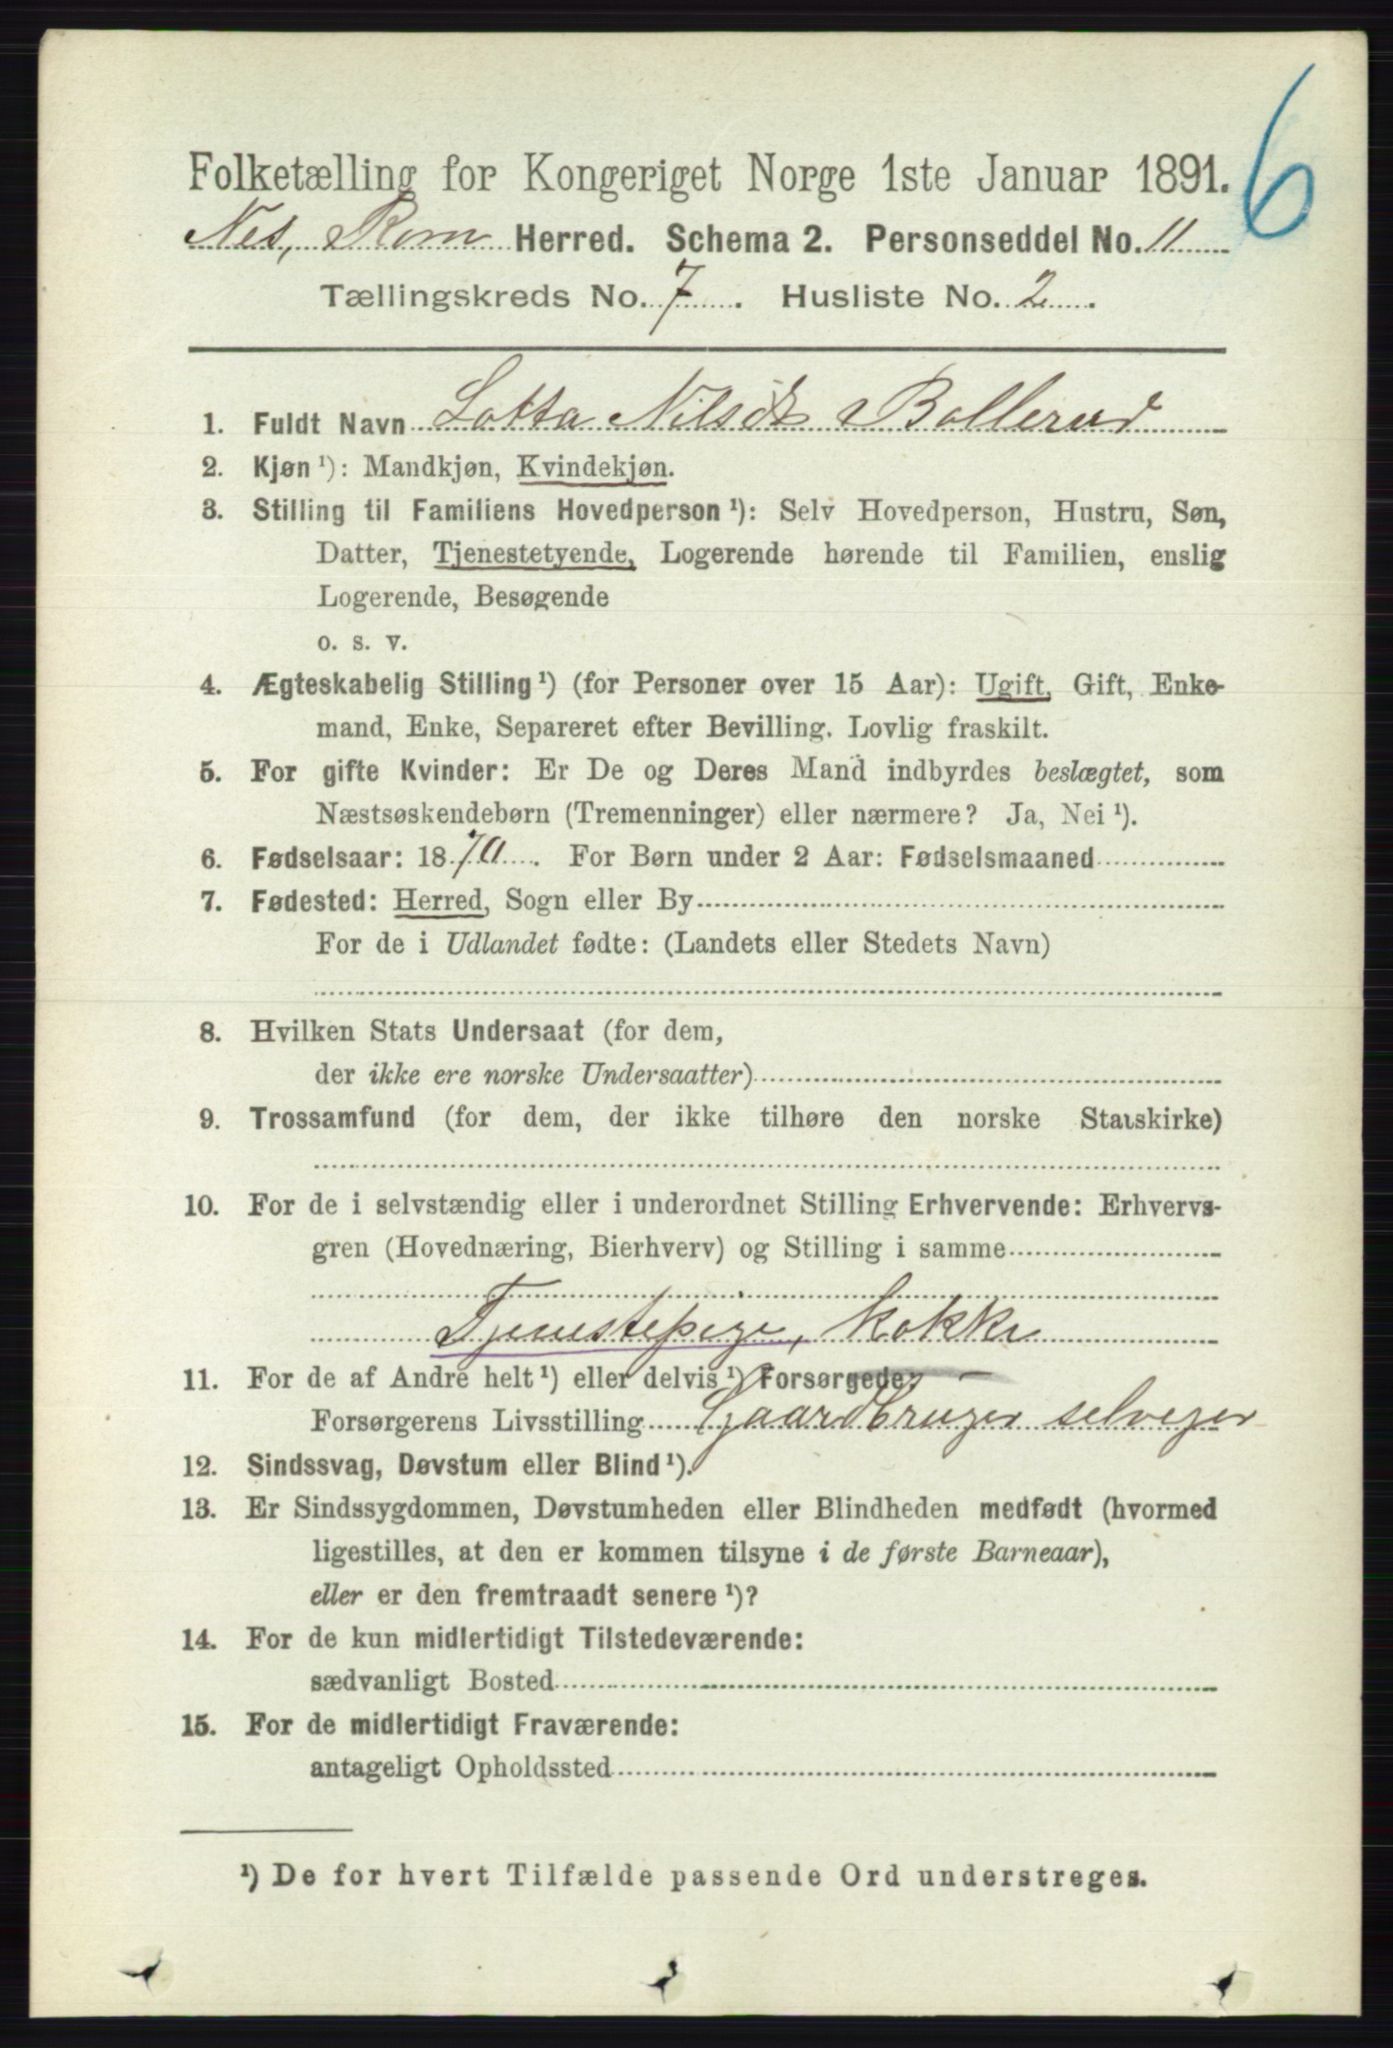 6
Folketælling for Kongeriget Norge 1ste Januar 1891.
Nes, Rom Herred. Schema 2. Personseddel No. 11
Tællingskreds No. 7. Husliste No. 2.
1. Fuldt Navn Lotta Nilsdt Bollerud
2. Kjøn ¹): Mandkjøn, Kvindekjøn.
3. Stilling til Familiens Hovedperson ¹): Selv Hovedperson, Hustru, Søn,
Datter, Tjenestetyende, Logerende hørende til Familien, enslig
Logerende, Besøgende
o. s. v.
4. Ægteskabelig Stilling ¹) (for Personer over 15 Aar): Ugift, Gift, Enke-
mand, Enke, Separeret efter Bevilling. Lovlig fraskilt.
5. For gifte Kvinder: Er De og Deres Mand indbyrdes beslægtet, som
Næstsøskendebørn (Tremenninger) eller nærmere? Ja, Nei ¹).
6. Fødselsaar: 1870. For Børn under 2 Aar: Fødselsmaaned
7. Fødested: Herred, Sogn eller By
For de i Udlandet fødte: (Landets eller Stedets Navn)
8. Hvilken Stats Undersaat (for dem,
der ikke ere norske Undersaatter)
9. Trossamfund (for dem, der ikke tilhøre den norske Statskirke)
10. For de i selvstændig eller i underordnet Stilling Erhvervende: Erhvervs-
gren (Hovednæring, Bierhverv) og Stilling i samme
Tjenestepige, kokke
11. For de af Andre helt ¹) eller delvis ¹) Forsørgede:
Forsørgerens Livsstilling Gaardbruger selveger
12. Sindssvag, Døvstum eller Blind ¹).
13. Er Sindssygdommen, Døvstumheden eller Blindheden medfødt (hvormed
ligestilles, at den er kommen tilsyne i de første Barneaar),
eller er den fremtraadt senere ¹)?
14. For de kun midlertidigt Tilstedeværende:
sædvanligt Bosted
15. For de midlertidigt Fraværende:
antageligt Opholdssted
¹) De for hvert Tilfælde passende Ord understreges.